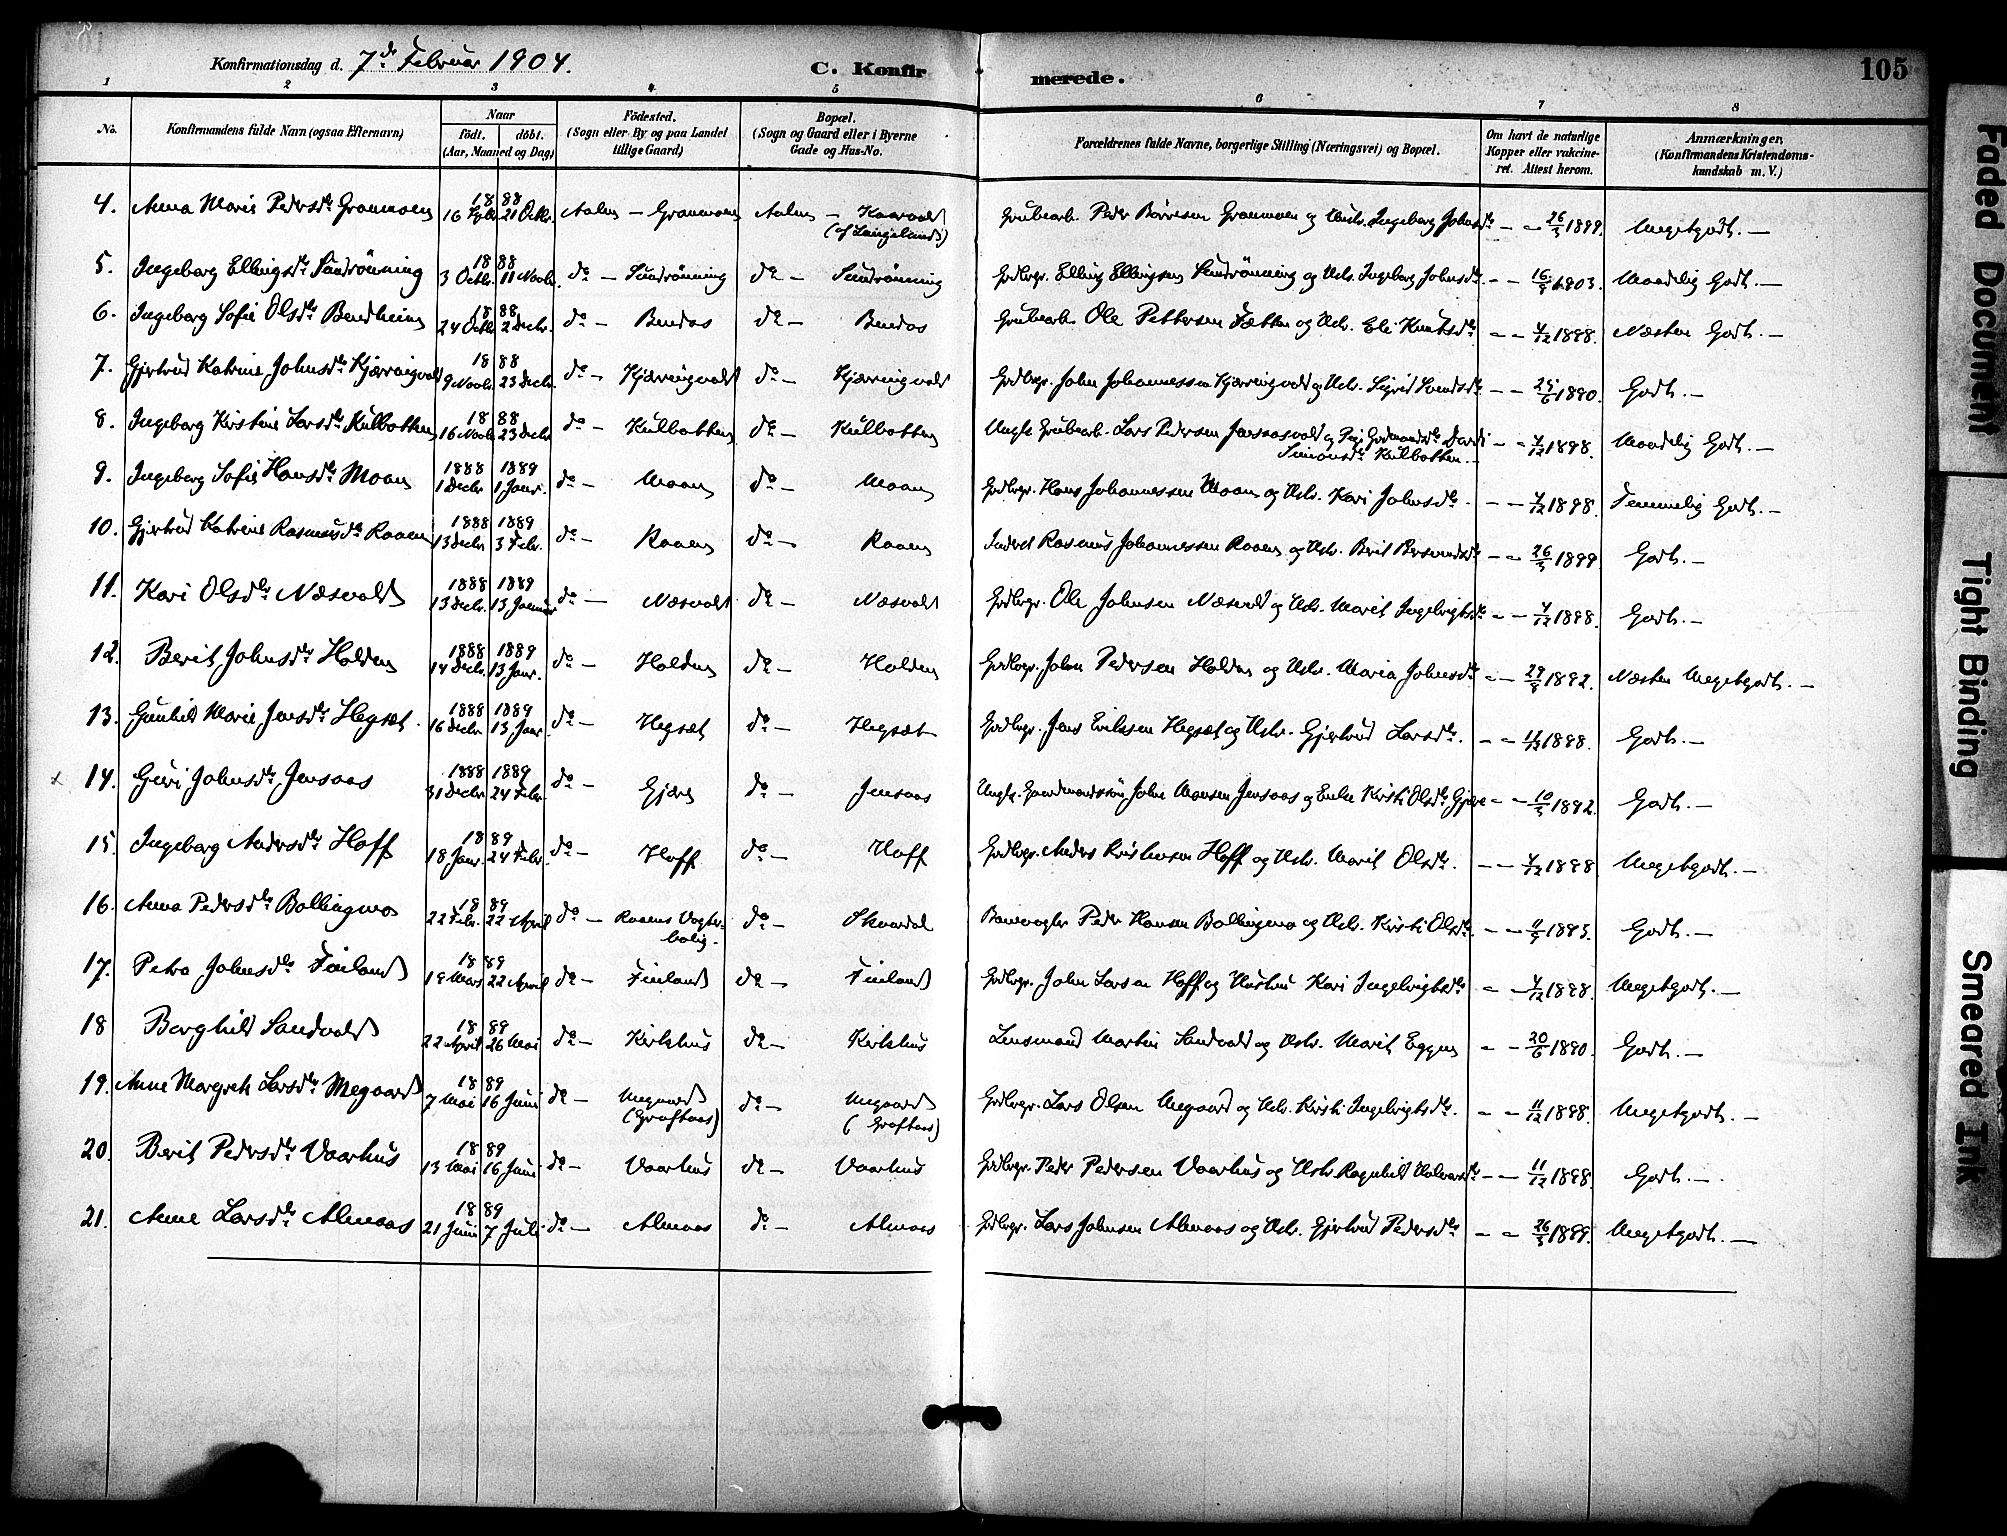 Konfirmationsdag d. 7de Februar 1904.
C. Konfirmerede.
105
1 2 3 4 5 6 7 8
No.
Konfirmandens fulde Navn (ogsaa Efternavn)
Naar
födt. döbt.
(Aar, Maaned og Dag)
Födested.
(Sogn eller By og paa Landet
tillige Gaard)
Bopæl.
(Sogn og Gaard eller i Byerne
Gade og Hus-No.
Forældrenes fulde Navne, borgerlige Stilling (Næringsvei) og Bopæl.
Om havt de naturlige
Kopper eller vakcine-
ret. Attest herom.
Anmærkninger,
(Konfirmandens Kristendoms-
kundskab m. V.)
4. Anna Marie Pedersdtr Granmoen 1888 16 Septbr. 21 Octbr. Aalen – Granmoen Aalen – Kaasvold (af Langeland) Grubearb. Peder Børresen Granmoen og Hustr. Ingeborg Johnsdtr – – 26/3 1899. Megetgodt. –
5. Ingeborg Ellingsdtr Sundrönning 1888 3 Octbr. 11 Novbr. do – Sundrönning do – Sundrönning Grdbrgr. Elling Ellingsen Sundrönning og Hstr. Ingeborg Johnsdtr. – – 16/3 1903. Maadelig Godt. –
6. Ingeborg Sofie Olsdtr Bendheim 1888 24 Octbr. 2 Decbr. do – Bendos do – Bendos Grubearb. Ole Pettersen Fætten og Hstr. Eli Knutsdtr – – 4/12 1898. Næsten Godt. –
7. Gjertrud Katrine Johnsdtr Kjærringvold 1888 9 Novbr. 23 Decbr. do – Kjærringvold do – Kjærringvold Grdbrgr. John Johannessen Kjærringvold og Hstr. Sigrid Svendsdtr – – 25/6 1890. Godt. –
8. Ingeborg Kirstine Larsdtr Kulbotten 1888 16 Novbr. 23 Decbr. do – Kulbotten do – Kulbotten Ungk. Grubearb. Lars Pedersen Jensaasvold og Pige Dordi – – 4/12 1898. Maadelig Godt. –
Simonsdtr Kulbotten. –
9. Ingeborg Sofie Hansdtr Moan 1888 1 Decbr. 1889 1 Janr. do – Moan do – Moan Grdbrgr. Hans Johannessen Moan og Hstr. Kari Johnsdtr. – – 4/12 1898. Temmelig Godt. –
10. Gjertrud Katrine Rasmusdtr Raaen 1888 13 Decbr. 1889 3 Febr. do – Raaen do – Raaen Inderst Rasmus Johannessen Raaen og Hstr. Berit – – 26/3 1899 Godt. –
11. Kari Olsdtr Næsvold 1888 13 Decbr. 1889 13 Januar do – Næsvold do – Næsvold Grdbrgr. Ole Johnsen Næsvold og Hstr. Marit Ingebrigtsdtr – – 4/12 1898. Godt. –
12. Berit Johnsdtr Holden 1888 14 Decbr. 1889 13 Janr. do – Holden do – Holden Grdbrgr. John Pedersen Holden og Hstr. Maria Johnsdtr – – 29/8 1892. Næsten Megetgodt. –
13. Gunhild Marie Jensdtr Hegsæt. 1888 16 Decbr. 1889 13 Janr. do – Hegsæt do – Hegsæt Grdbrgr. Jens Eriksen Hegsæt og Hstr. Gjertrud Larsdtr. – – 11/12 1898. Godt. –
14. Guri Johnsdtr Jensaas 1888 31 Decbr. 1889 24 Febr. do – Gjære do – Jensaas Ungk. Gaardmandssön John Monsen Jensaas og Enke Kirsti Olsdtr Gjære – – 10/5 1892. Godt. –
15. Ingeborg Andersdtr Hoff 1889 18 Janr. 24 Febr. do – Hoff do – Hoff Grdbrgr. Anders Kristensen Hoff og Hstr. Marit Olsdtr. – – 4/12 1898 Megetgodt. –
16. Anna Pedersdtr Bollingmo 1889 22 Febr. 22 April do – Raaens Vogter- do – Skaardal Banevogter Peder Hansen Bollingmo og Hstr. Kirsti Olsdtr. – – 1895. Godt. –
bolig.
17. Petra Johnsdtr Finland 1889 19 Mars 22 April do – Finland do – Finland Grdbrgr. John Larsen Hoff og Hustru Kari Ingebrigtsdtr – – 4/12 1898. Megetgodt. –
18 Borghild Sandvold 1889 22 April 26 Mai do – Kirkhus do – Kirkhus Lensmand Martin Sandvold og Hstr. Marit Eggen – – 20/6 1890. Godt. –
19. Anne Margrete Larsdtr Megaard 1889 7 Mai 16 Juni do – Megaard (Grøftaas) do – Megaard (Grøftaas) Grdbrgr. Lars Olsen Megaard og Hstr. Kirsti Ingebrigtsdtr. – – 11/12 1898. Megetgodt. –
20. Berit Pedersdtr Vaarhus 1889 13 Mai 16 Juni do – Vaarhus do – Vaarhus Grdbrgr. Peder Pedersen Vaarhus og Hstr. Ragnhild Halvorsdtr – – 11/12 1898. Godt. –
21. Anne Larsdtr Almaas 1889 21 Juni 7 Juli do – Almaas do – Almaas Grdbrgr. Lars Johnsen Almaas og Hstr. Gjertrud Pedersdtr – – 26/3 1899. Megetgodt. –
Faded Document
Tight Binding
Smeared Ink